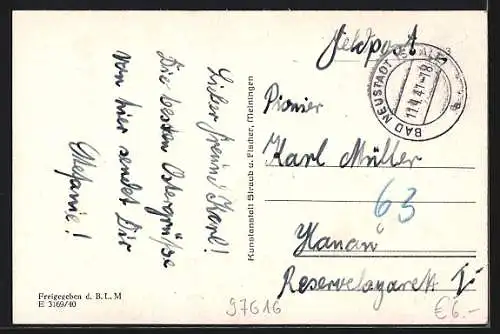 Feldpost
BAD NEUSTADT (SAALE)
11.4.41-18
Lieber Freund Karl!
Die besten Ostergrüße
von hier sendet Dir
Stefanie!
Kunstanstalt Straub u. Fischer, Meiningen
Pionier
Karl Müller
63
Hanau
Reservelazarett I
Freigegeben d. B. L. M
E 3169/40
97616
€6.-